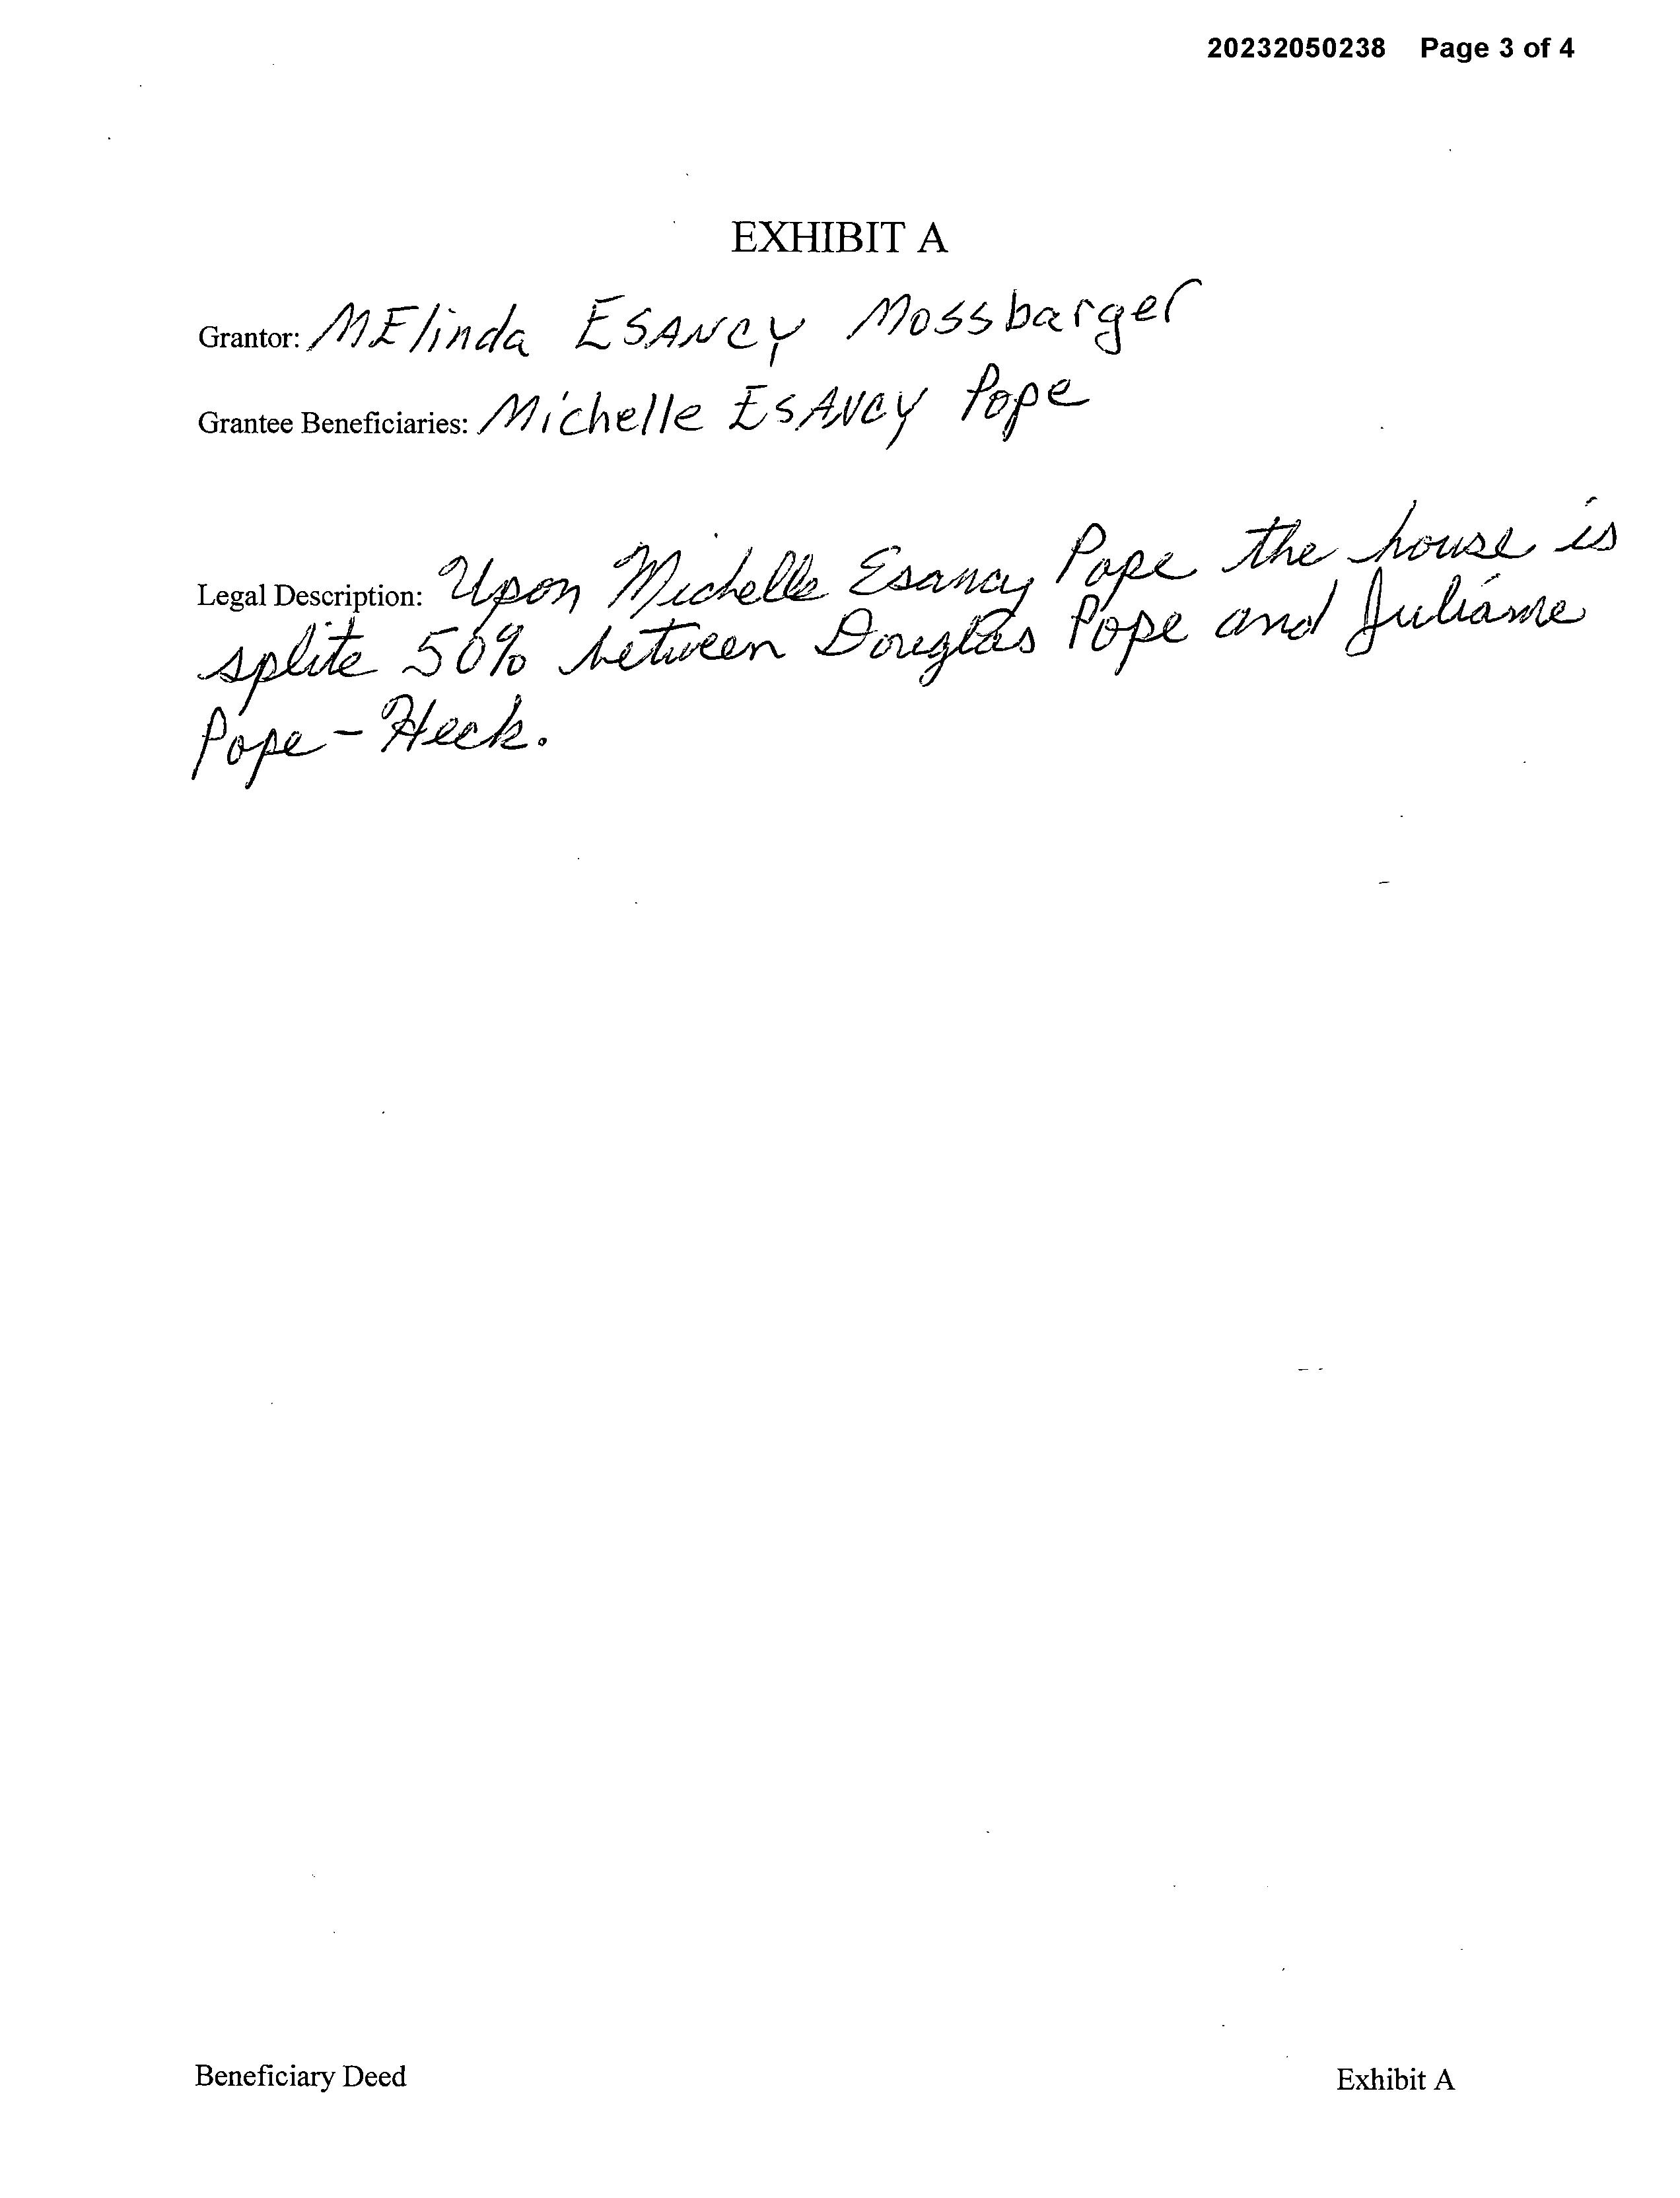 20232050238 Page 3 of 4
EXHIBIT A
Grantor: MElinda ESANCY Mossbarger
Grantee Beneficiaries: Michelle ESANCY Pope
Legal Description: Upon Michelle Esancy Pope the house is
splite 50% between Douglas Pope and Julianne
Pope - Heck.
Beneficiary Deed Exhibit A